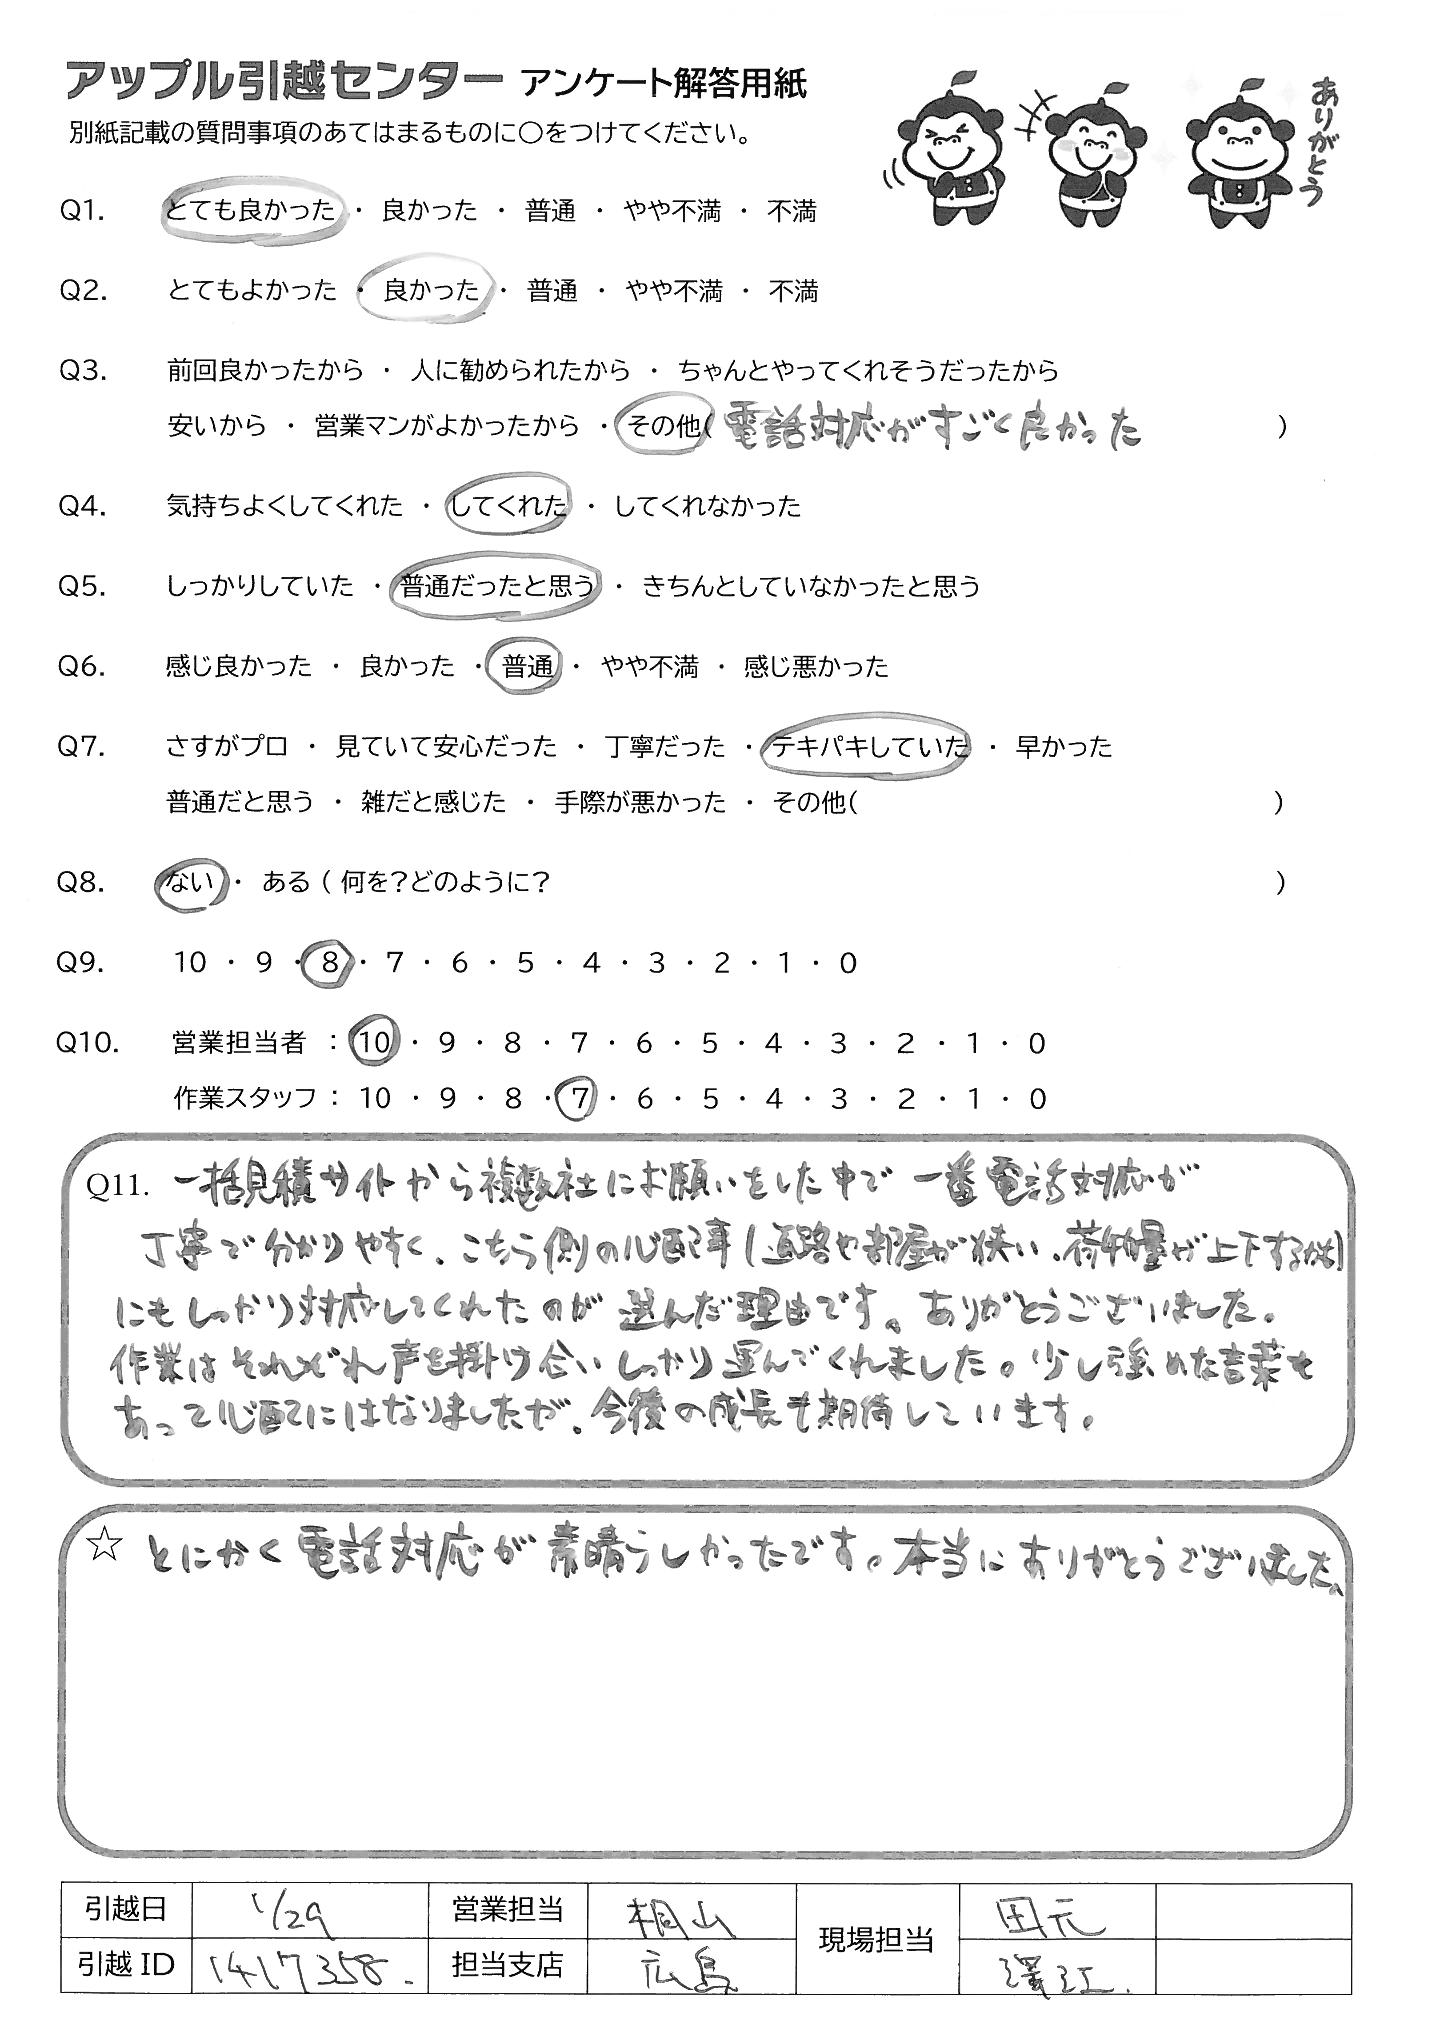 アップル引越センター アンケート解答用紙
別紙記載の質問事項のあてはまるものに○をつけてください。
ありがとう
Q1. とても良かった ・ 良かった ・ 普通 ・ やや不満 ・ 不満
Q2. とてもよかった ・ 良かった ・ 普通 ・ やや不満 ・ 不満
Q3. 前回良かったから ・ 人に勧められたから ・ ちゃんとやってくれそうだったから
安いから ・ 営業マンがよかったから ・ その他( 電話対応がすごく良かった )
Q4. 気持ちよくしてくれた ・ してくれた ・ してくれなかった
Q5. しっかりしていた ・ 普通だったと思う ・ きちんとしていなかったと思う
Q6. 感じ良かった ・ 良かった ・ 普通 ・ やや不満 ・ 感じ悪かった
Q7. さすがプロ ・ 見ていて安心だった ・ 丁寧だった ・ テキパキしていた ・ 早かった
普通だと思う ・ 雑だと感じた ・ 手際が悪かった ・ その他( )
Q8. ない ・ ある ( 何を?どのように? )
Q9. 10 ・ 9 ・ 8 ・ 7 ・ 6 ・ 5 ・ 4 ・ 3 ・ 2 ・ 1 ・ 0
Q10. 営業担当者 : 10 ・ 9 ・ 8 ・ 7 ・ 6 ・ 5 ・ 4 ・ 3 ・ 2 ・ 1 ・ 0
作業スタッフ : 10 ・ 9 ・ 8 ・ 7 ・ 6 ・ 5 ・ 4 ・ 3 ・ 2 ・ 1 ・ 0
Q11. 一括見積サイトから複数社にお願いをした中で 一番電話対応が
丁寧で分かりやすく、こちら側の心配事(道路や部屋が狭い、荷物量が上下するかも)
にもしっかり対応してくれたのが 選んだ理由です。ありがとうございました。
作業はそれぞれ声を掛け合い しっかり運んでくれました。少し強めな言葉も
あって心配にはなりましたが、今後の成長も期待しています。
☆ とにかく電話対応が素晴らしかったです。本当にありがとうございました。
引越日 1/29 営業担当 桐山 現場担当 田元
引越ID 1417358. 担当支店 広島 澤江.